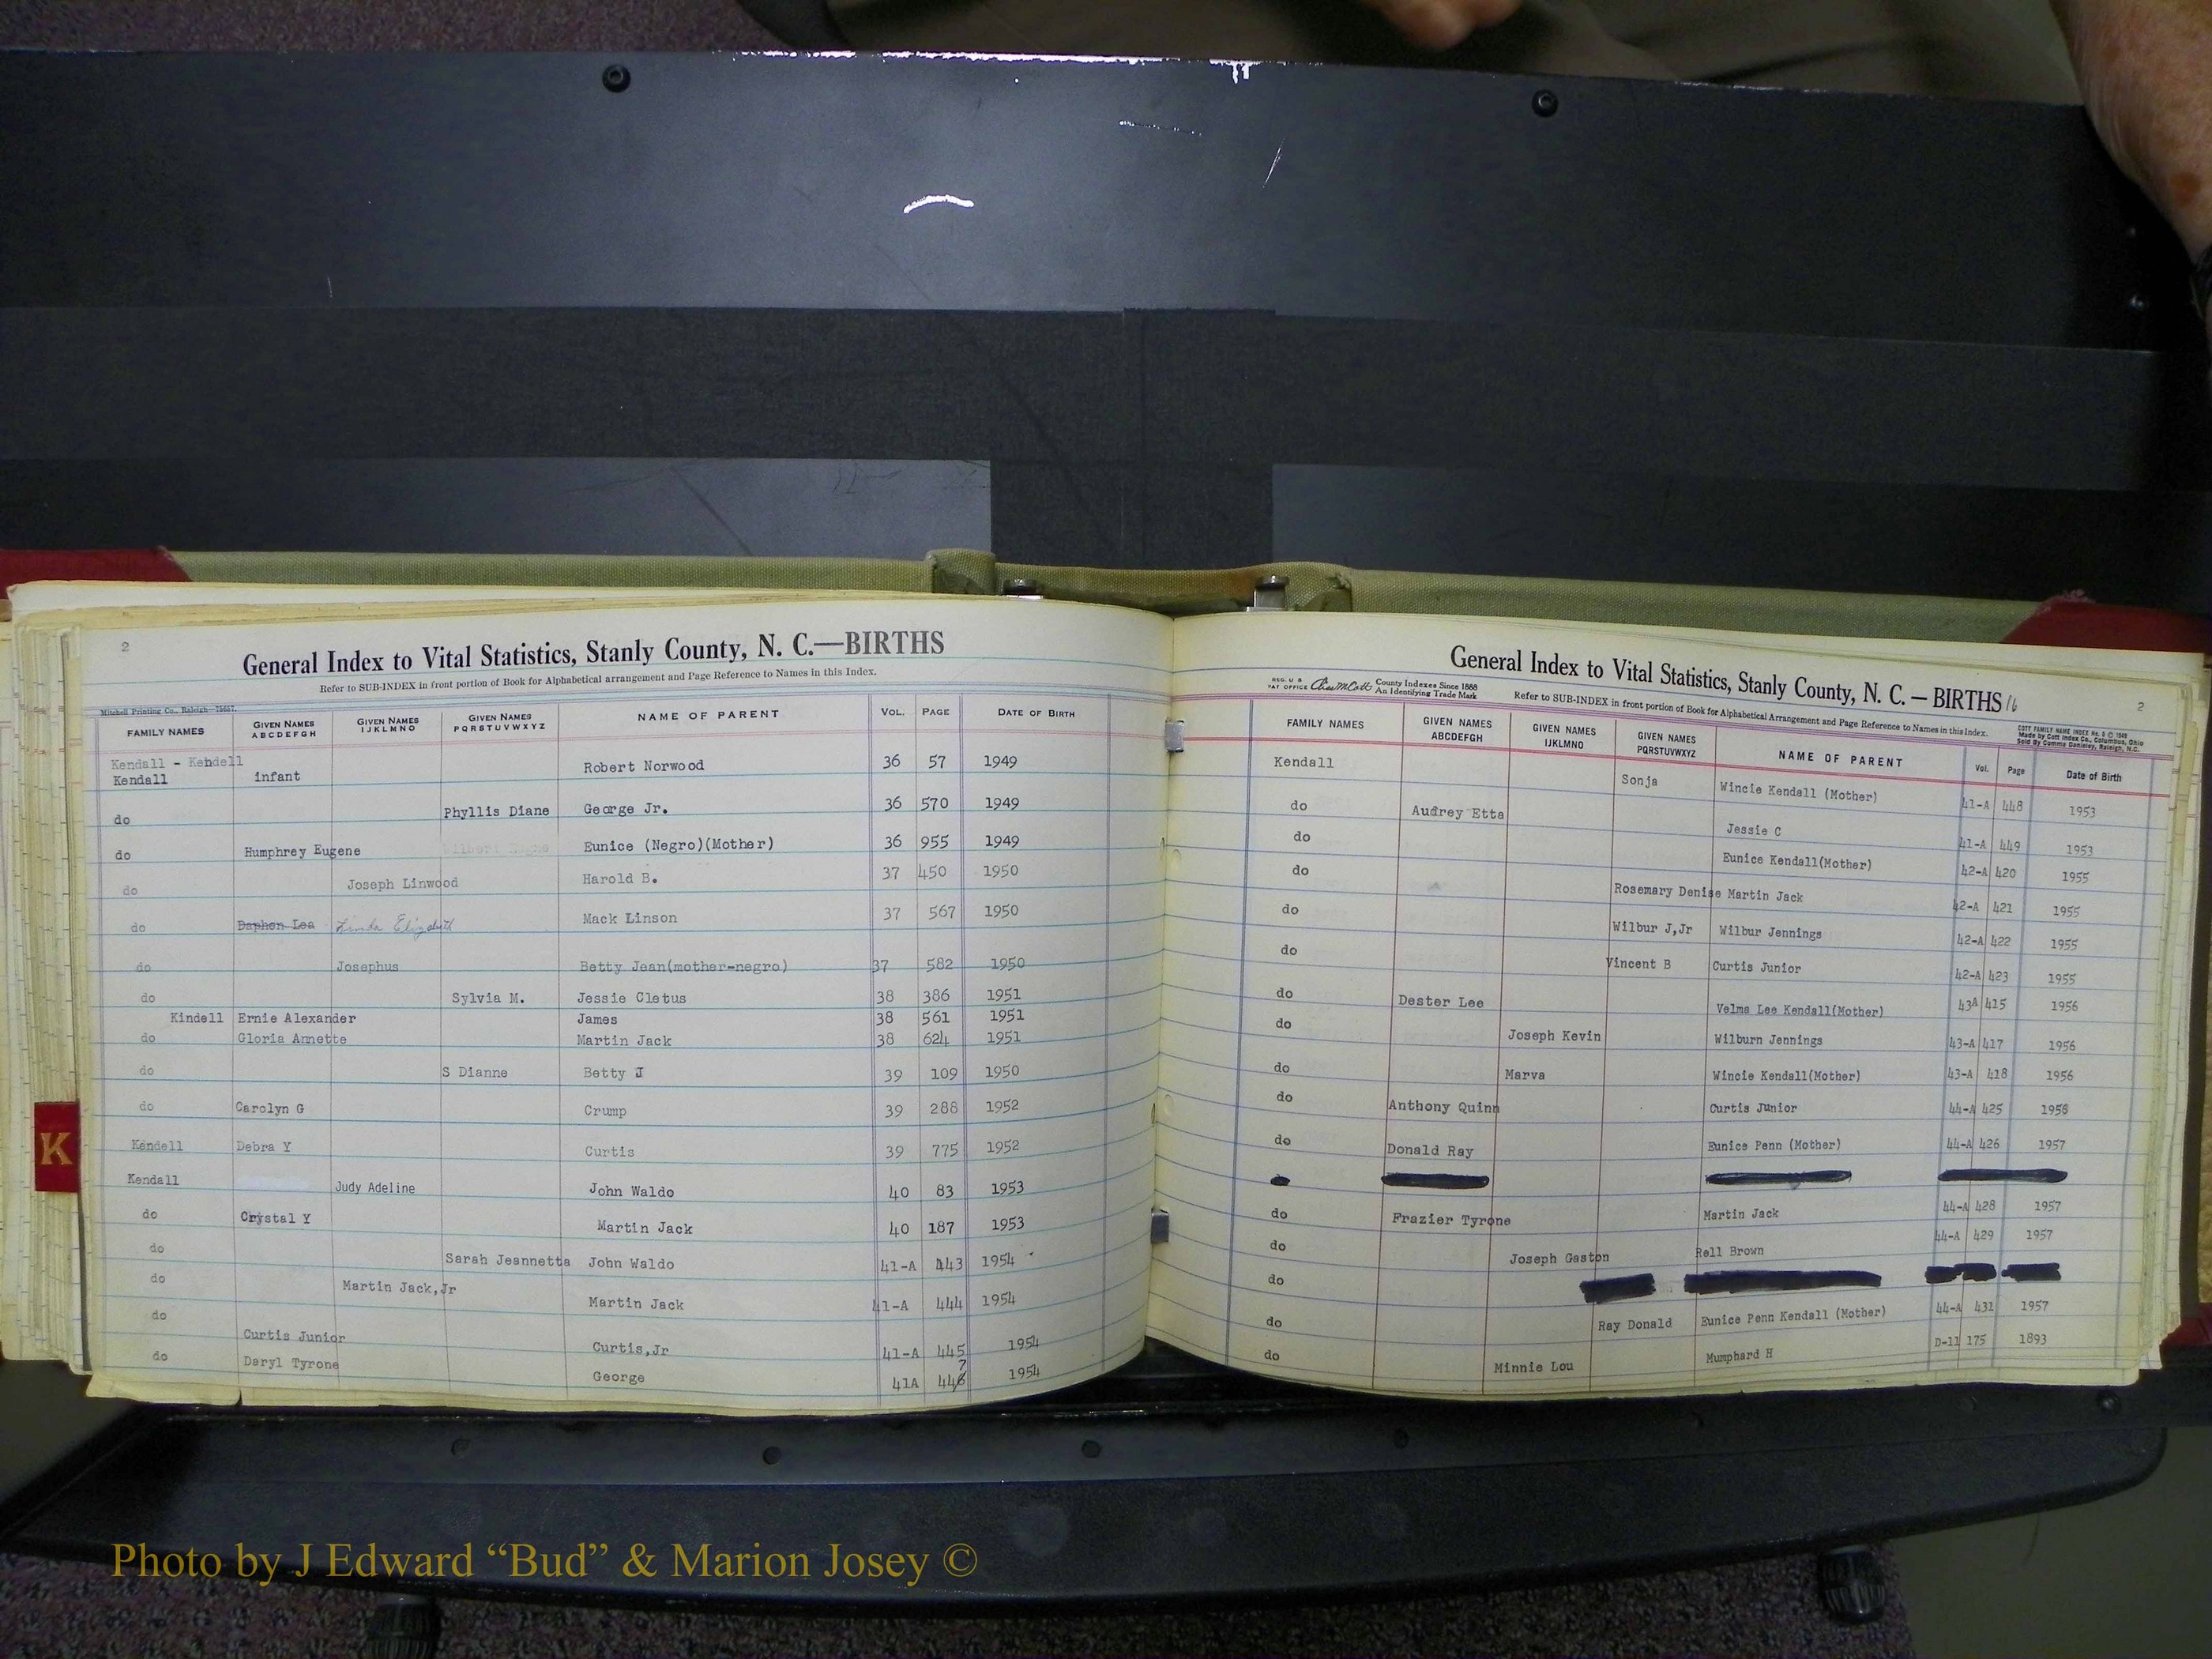 2
General Index to Vital Statistics, Stanly County, N. C.—BIRTHS
Refer to SUB-INDEX in front portion of Book for Alphabetical arrangement and Page Reference to Names in this Index.
Mitchell Printing Co., Raleigh—75657.
FAMILY NAMES GIVEN NAMES ABCDEFGH GIVEN NAMES IJKLMNO GIVEN NAMES PQRSTUVWXYZ NAME OF PARENT VOL. PAGE DATE OF BIRTH
Kendall - Kendell
Kendall infant Robert Norwood 36 57 1949
do Phyllis Diane George Jr. 36 570 1949
do Humphrey Eugene Eunice (Negro)(Mother) 36 955 1949
do Joseph Linwood Harold B. 37 450 1950
do Daphen Lea Linda Elizabeth Mack Linson 37 567 1950
do Josephus Betty Jean(mother-negro) 37 582 1950
do Sylvia M. Jessie Cletus 38 386 1951
Kindell Ernie Alexander James 38 561 1951
do Gloria Annette Martin Jack 38 624 1951
do S Dianne Betty J 39 109 1950
do Carolyn G Crump 39 288 1952
Kendell Debra Y Curtis 39 775 1952
Kendall Judy Adeline John Waldo 40 83 1953
do Crystal Y Martin Jack 40 187 1953
do Sarah Jeannette John Waldo 41-A 443 1954
do Martin Jack,Jr Martin Jack 41-A 444 1954
do Curtis Junior Curtis,Jr 41-A 445 1954
do Daryl Tyrone George 41A 446 7 1954
K
General Index to Vital Statistics, Stanly County, N. C. — BIRTHS 16
2
REG. U.S. PAT OFFICE County Indexes Since 1888 An Identifying Trade Mark
Refer to SUB-INDEX in front portion of Book for Alphabetical Arrangement and Page Reference to Names in this Index.
COTT FAMILY NAME INDEX
Made by Cott Index Co., Columbus, Ohio
FAMILY NAMES GIVEN NAMES ABCDEFGH GIVEN NAMES IJKLMNO GIVEN NAMES PQRSTUVWXYZ NAME OF PARENT Vol. Page Date of Birth
Kendall Sonja Wincie Kendall (Mother) 41-A 448 1953
do Audrey Etta Jessie C 41-A 449 1953
do Eunice Kendall(Mother) 42-A 420 1955
do Rosemary Denise Martin Jack 42-A 421 1955
do Wilbur J,Jr Wilbur Jennings 42-A 422 1955
do Vincent B Curtis Junior 42-A 423 1955
do Dester Lee Velma Lee Kendall(Mother) 43A 415 1956
do Joseph Kevin Wilburn Jennings 43-A 417 1956
do Marva Wincie Kendall(Mother) 43-A 418 1956
do Anthony Quinn Curtis Junior 44-A 425 1958
do Donald Ray Eunice Penn (Mother) 44-A 426 1957
do Frazier Tyrone Martin Jack 44-A 428 1957
do Joseph Gaston Rell Brown 44-A 429 1957
do
do Ray Donald Eunice Penn Kendall (Mother) 44-A 431 1957
do Minnie Lou Mumphard H D-11 175 1893
Photo by J Edward “Bud” & Marion Josey ©